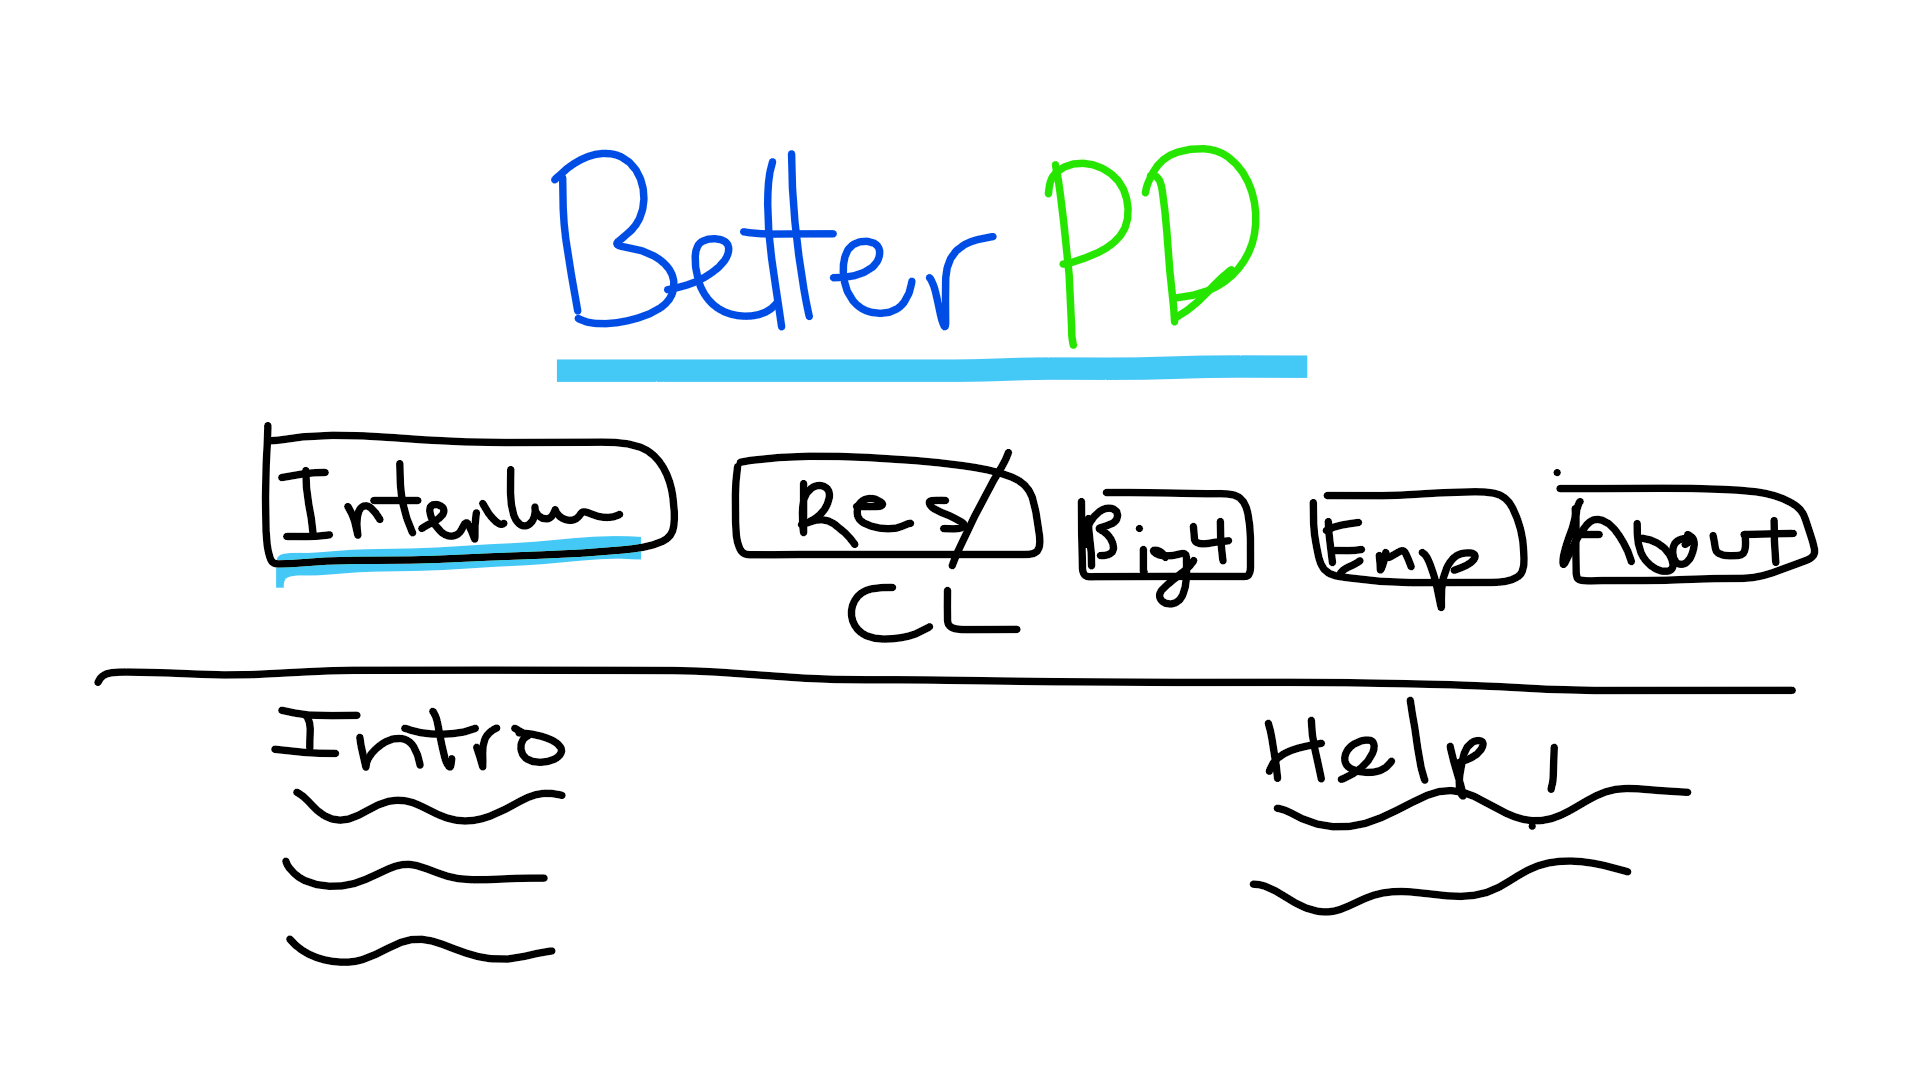 Better PD
Interview Res/ Big 4 Emp About
CL
Intro
Help!